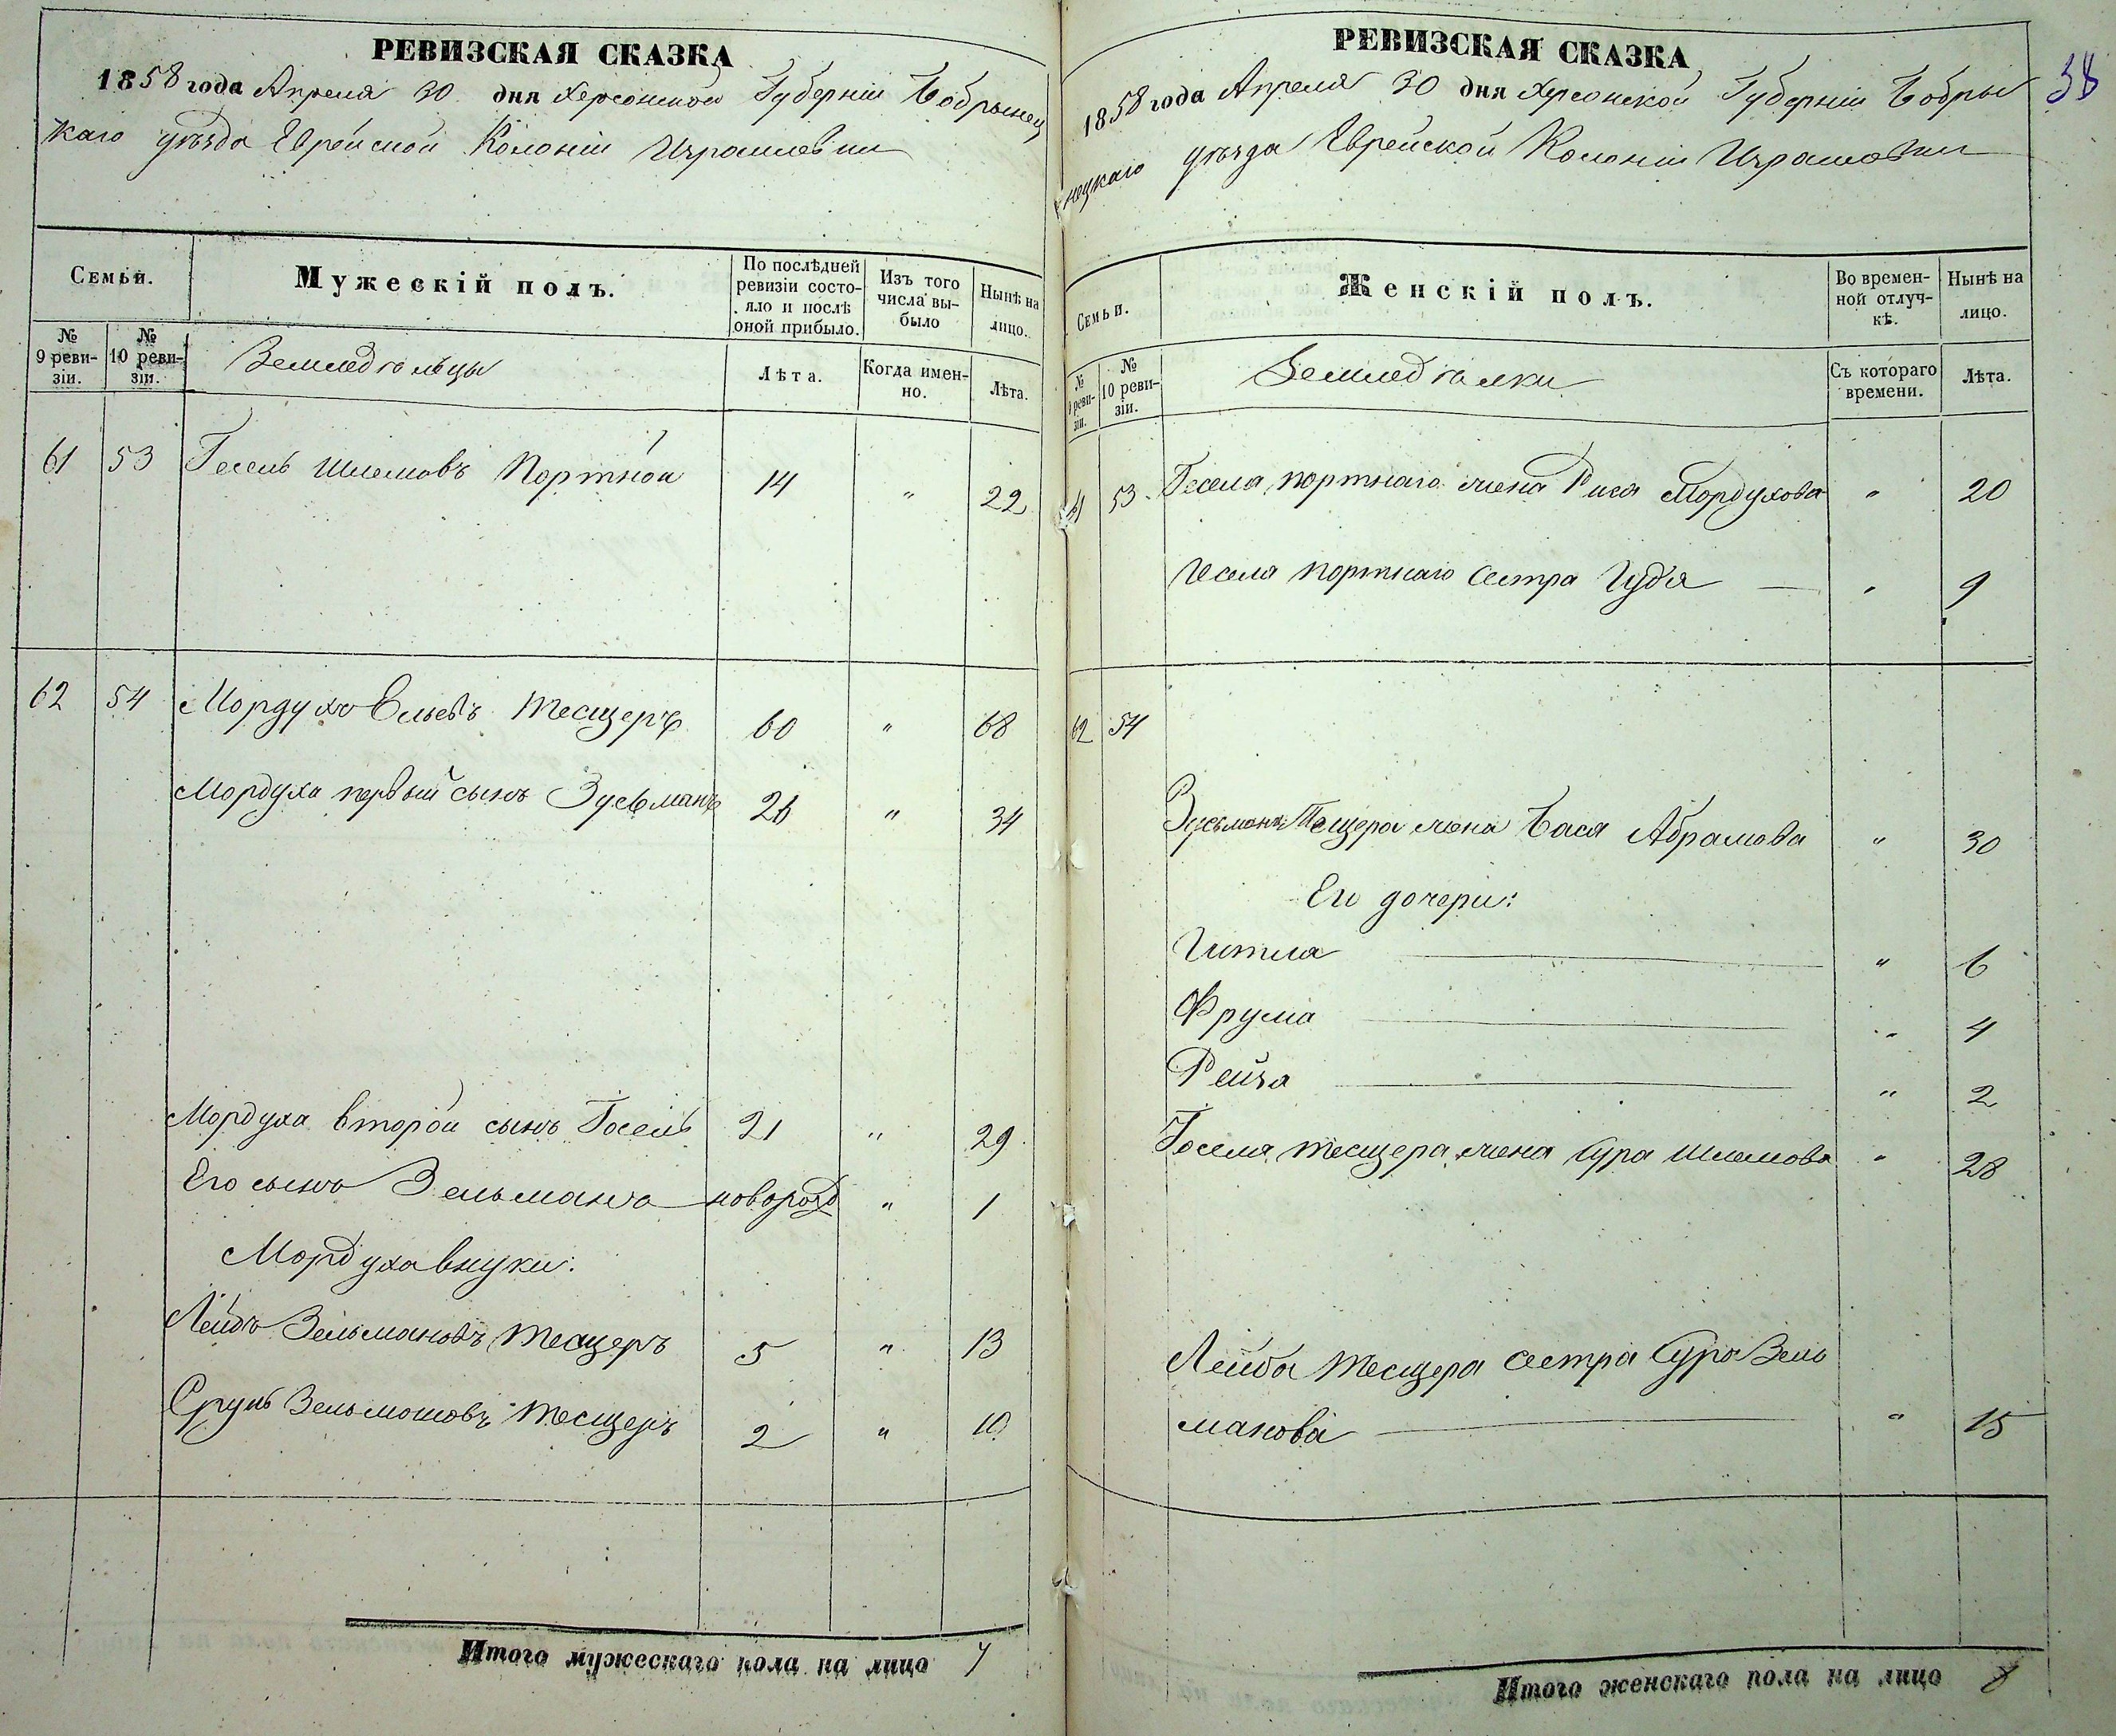 РЕВИЗСКАЯ СКАЗКА
1858 года Апреля 30 дня Херсонской Губерніи Бобринец
каго уѣзда Еврейской Колоніи Израилевки
Семьи.
Мужескій полъ.
По послѣдней ревизіи состо-
яло и послѣ
оной прибыло.
Изъ того
числа вы-
было
Нынѣ на
лицо.
№
9 реви-
зіи.
№
10 реви-
зіи.
Земледѣльцы
Лѣта.
Когда имен-
но.
Лѣта.
61 53 Гесель Шлемовъ Портной 14 " 22
62 54 Мордухъ Ельевъ Тесцеръ 60 " 68
Мордуха первый сынъ Зусьманъ 26 " 34
Мордуха второй сынъ Іосель 21 " 29
Его сынъ Зельманъ новорожд " 1
Мордуха внуки:
Лейбъ Зельмановъ Тесцеръ 5 " 13
Сруль Зельмановъ Тесцеръ 2 " 10
Итого мужескаго пола на лицо 7
РЕВИЗСКАЯ СКАЗКА
1858 года Апреля 30 дня Херсонской Губерніи Бобри
нецкаго уѣзда Еврейской Колоніи Израилевки
38
Семьи.
Женскій полъ.
Во времен-
ной отлуч-
кѣ.
Нынѣ на
лицо.
№
9 реви-
зіи.
№
10 реви-
зіи.
Земледѣлки
Съ котораго
времени.
Лѣта.
61 53 Геселя Портнаго жена Рися Мордухова " 20
Геселя Портнаго сестра Гудя " 9
62 54
Зусьмана Тесцера жена Бася Абрамова " 30
Его дочери:
Гитля " 6
Фрума " 4
Рейза " 2
Іоселя Тесцера жена Сура Шлемова " 28
Лейба Тесцера сестра Сура Зель
манова " 15
Итого женскаго пола на лицо 8